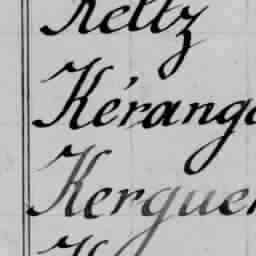 Keltz
Kérang
Kerguer